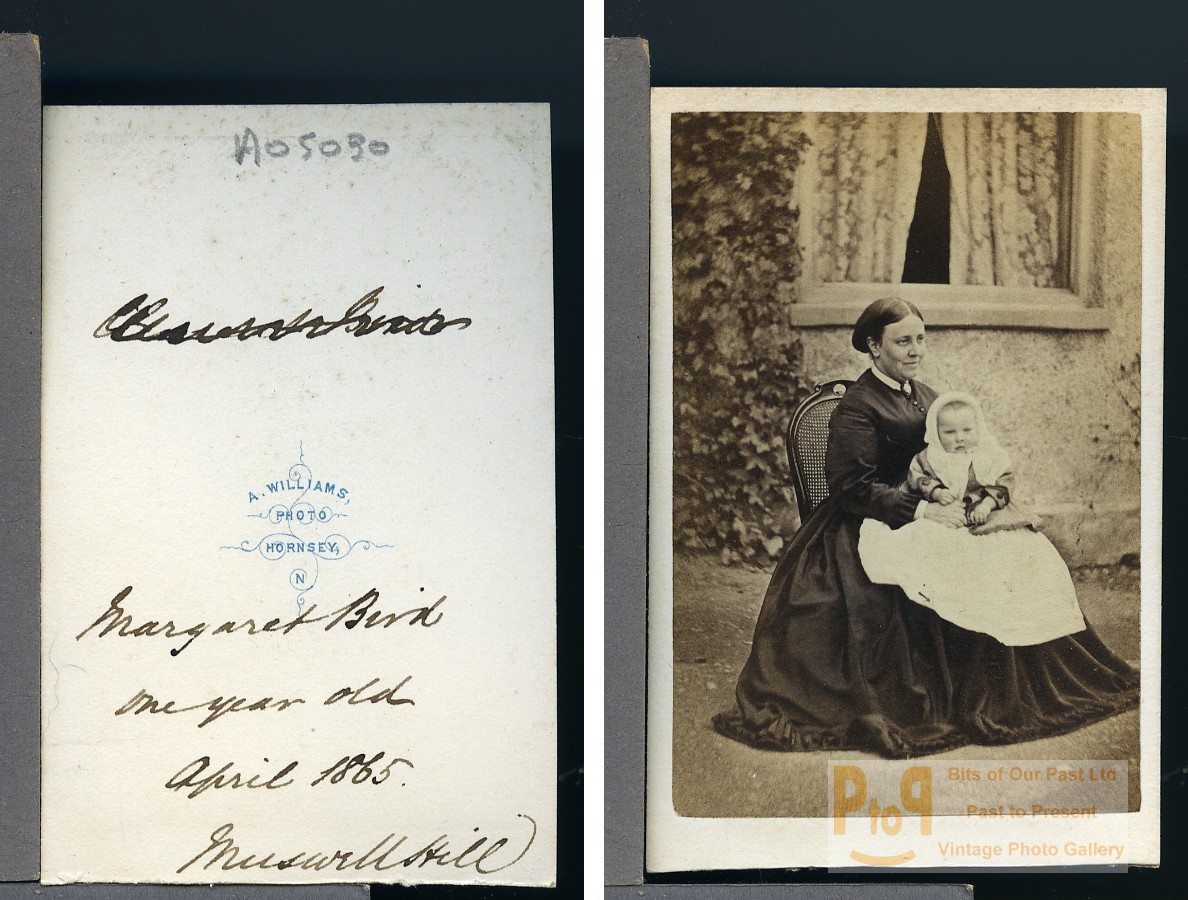 A05030
A. WILLIAMS,
PHOTO
HORNSEY,
N
Margaret Bird
one year old
April 1865.
Muswell Hill
PtoP
Bits of Our Past Ltd
Past to Present
Vintage Photo Gallery